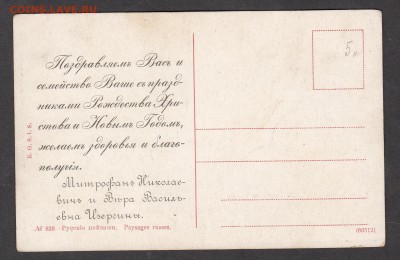 COINS.LAVE.RU
Поздравляемъ Васъ и
семейство Ваше съ празд-
никами Рождества Хри-
стова и Новымъ Годомъ,
желаемъ здоровья и благо-
получія.
Митрофанъ Николае-
вичъ и Вѣра Василь-
евна Изерсины.
№ 828 Русскіе пейзажи. Paysages russes.
5